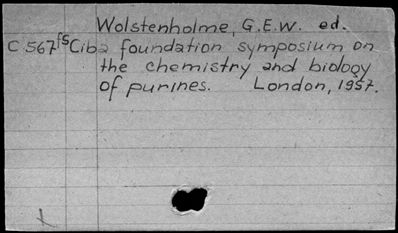 Wolstenholme, G.E.W. ed.
C 567fs Ciba foundation symposium on
the chemistry and biology
of purines. London, 1957.